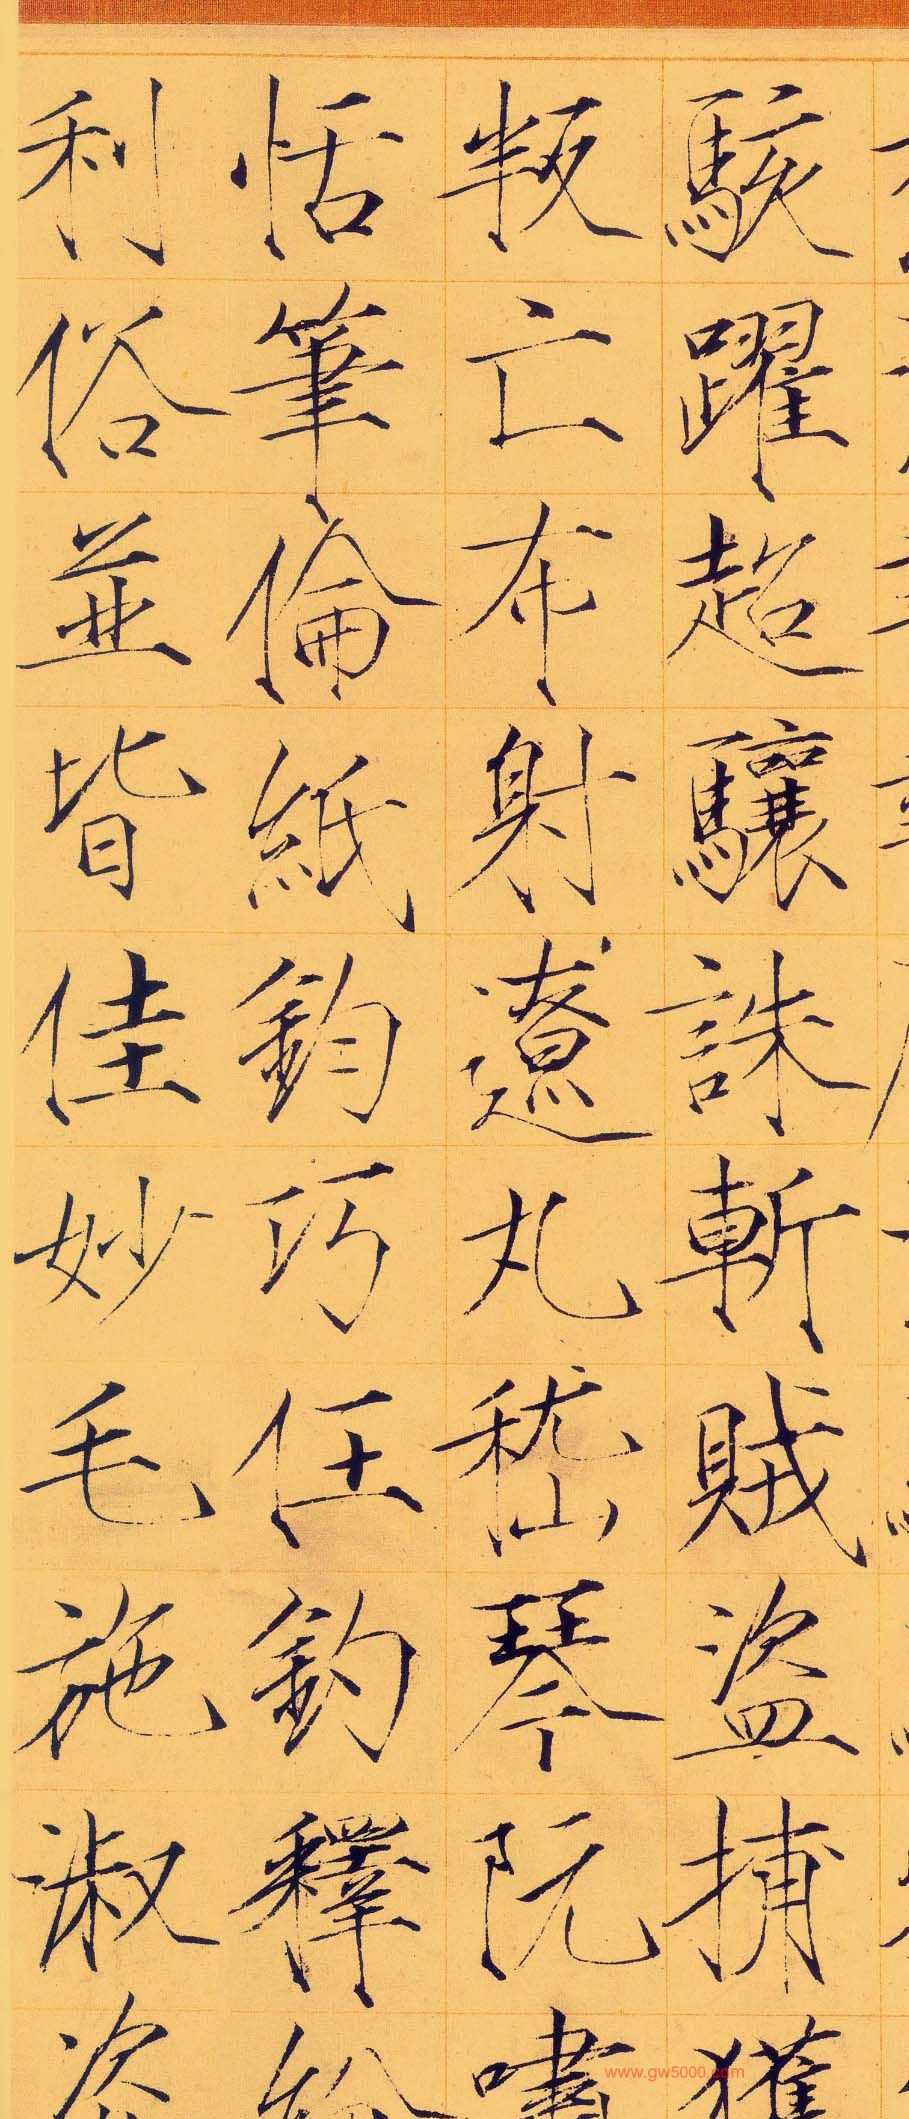 駭躍超驤誅斬賊盜捕獲
叛亡布射遼丸嵇琴阮嘯
恬筆倫紙鈞巧任釣釋紛
利俗並皆佳妙毛施淑姿
www.gw5000.com